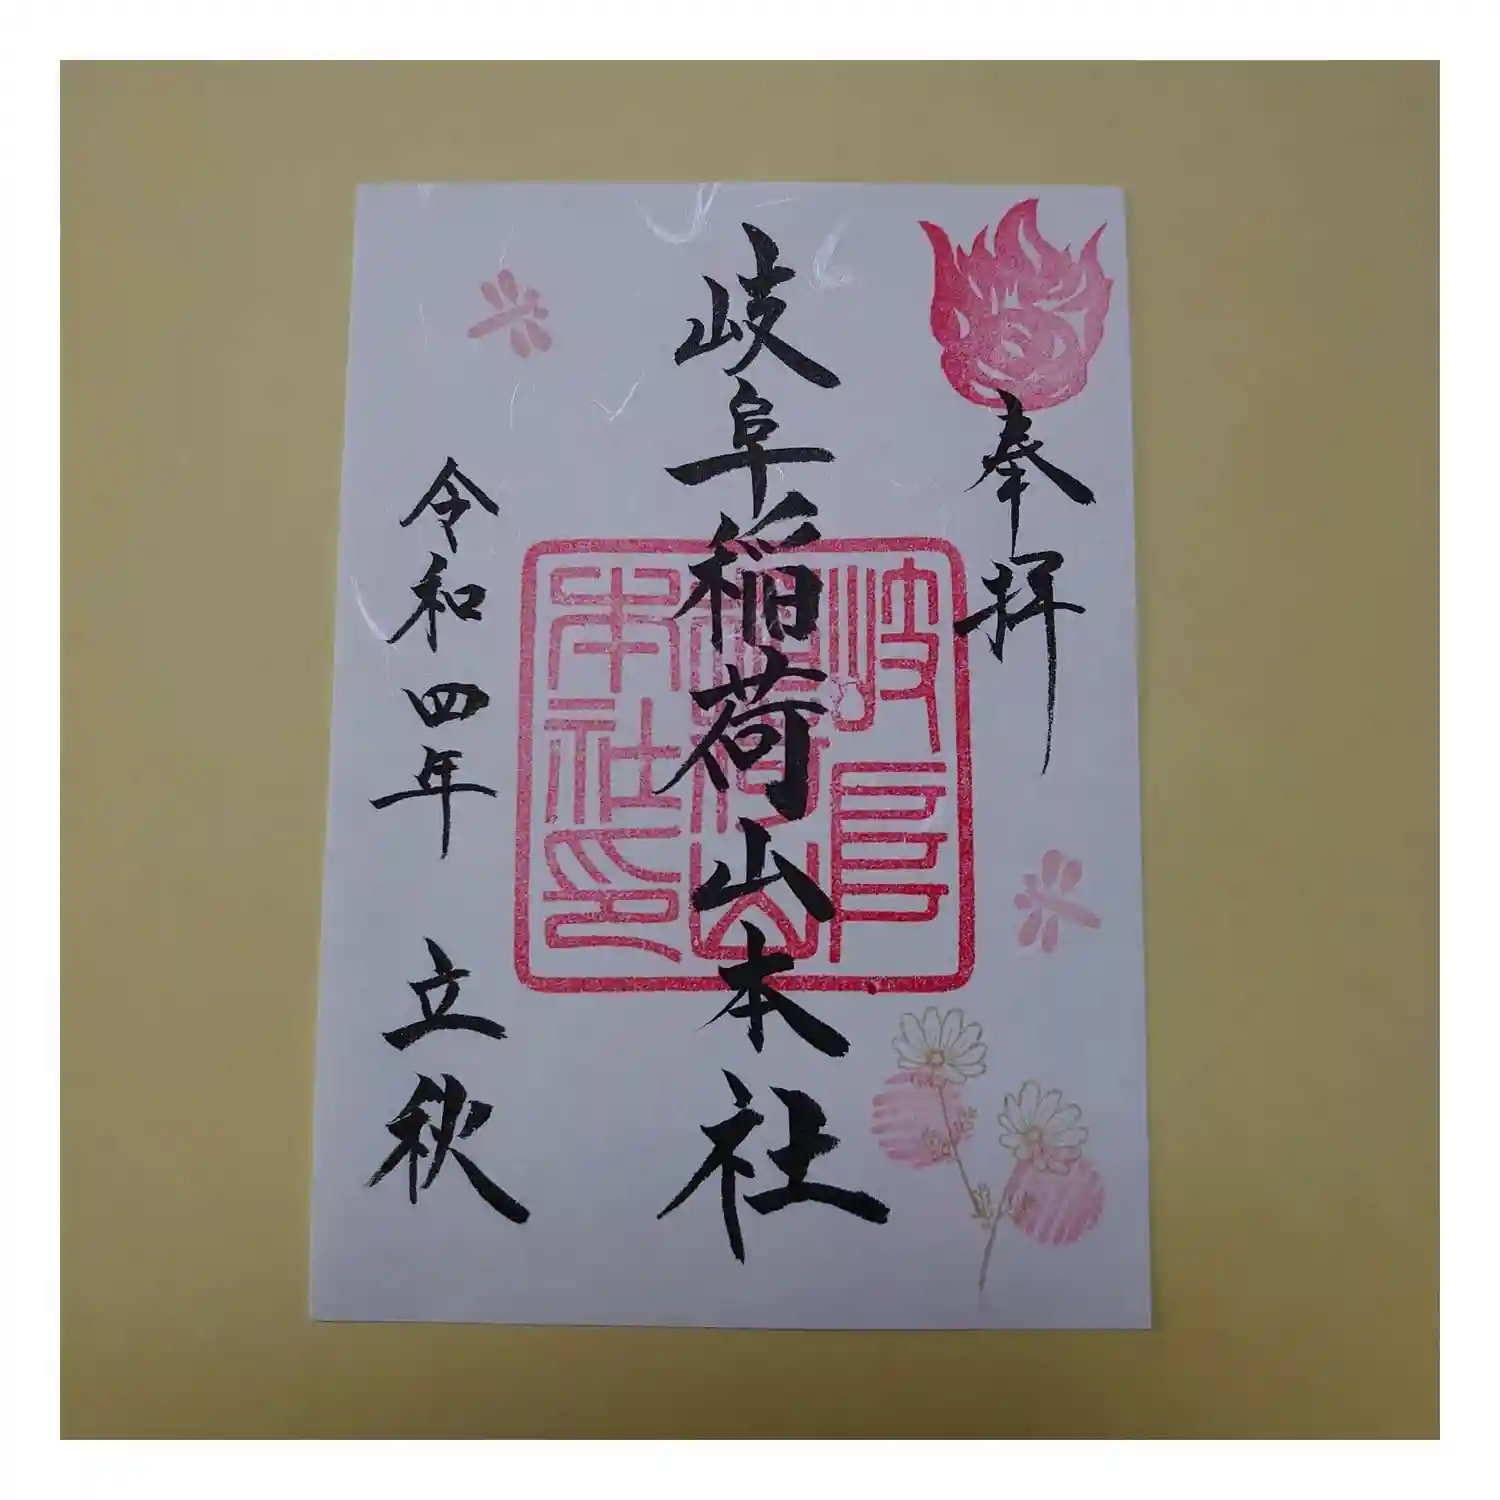 奉拝
岐阜稲荷山本社
岐阜
稲荷山
本社印
令和四年 立秋